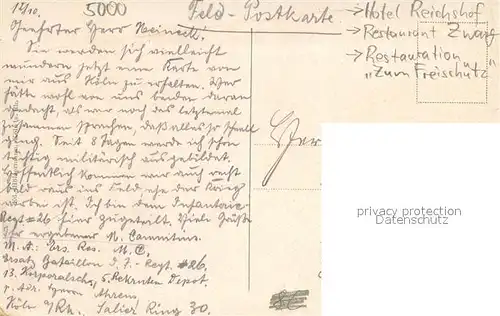 14/10.
5000
Feld-Postkarte
→ Hotel Reichshof
→ Restaurant Zwarg
→ Restauration
"Zum Freischütz"
Geehrter Herr Heineck.
Sie werden sich vielleicht
wundern jetzt eine Karte von
mir aus Köln zu erhalten. Wer
hätte wohl von uns beiden daran
gedacht, als wir noch das letztemal
zusammen sprachen, daß alles so schnell
ging. Seit 8 Tagen werde ich schon
tüchtig militärisch ausgebildet.
Hoffentlich kommen wir auch recht
bald raus ins Feld, ehe der Krieg
vorbei ist. Ich bin dem Infanterie-
Regt #26 hier zugeteilt. Viele Grüße
Ihr ergebener M.
M. A.: Ers. Res. M. C.
Ersatz Bataillon d. 7. Regt. #26.
13. Korporalsch, 5. Rekruten Depot.
p. Adr. Herrn Ahrem
Köln a/Rh. Salier Ring 30.
privacy protection
Datenschutz